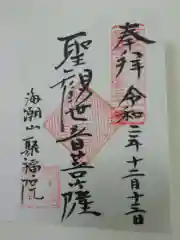 奉拝 令和 年十二月 日
聖観世音菩薩
海潮山 聚福院